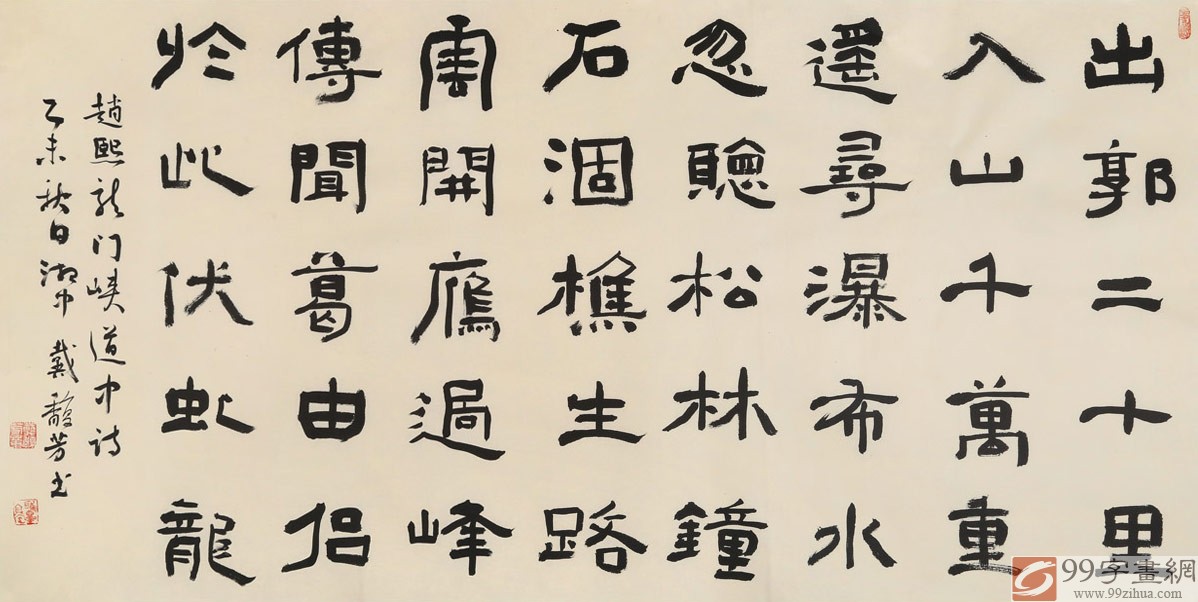 出郭二十里
入山千萬重
遥尋瀑布水
忽聽松林鐘
石涸樵生路
雲開鷹過峰
傳聞葛由侣
於此伏虬龍
趙熙龙门峡道中诗
乙未秋日湖中戴馥芳书
99字畫網
www.99zihua.com